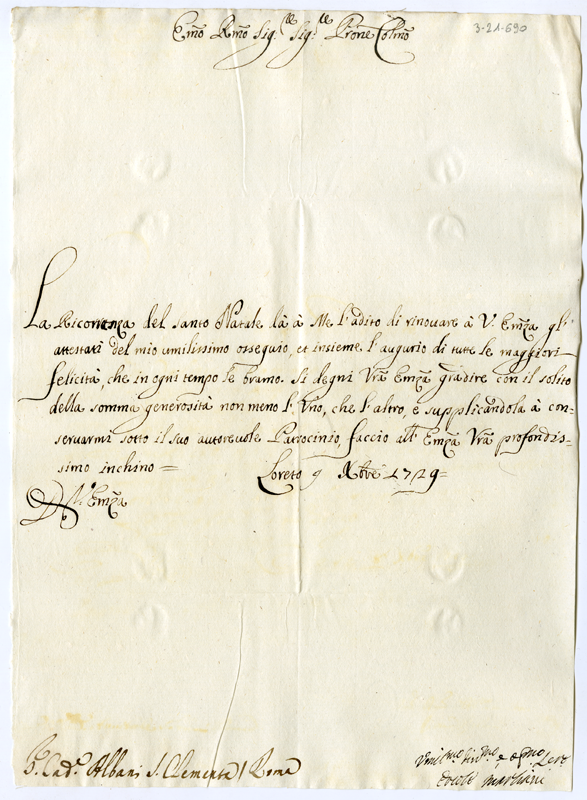 Emo Rmo Sig.re Sig.re Prone Colmo
3-21-690
La Ricorrenza del santo Natale dà à Me l'adito di rinouare à V. Emza gl'
attestati del mio umilissimo ossequio, et insieme l'augurio di tutte le maggiori
felicità, che in ogni tempo le bramo. Si degni Vra Emza gradire con il solito
della somma generosità non meno l'Vno, che l'altro, e supplicandola à con=
seruarmi sotto il suo autoreuole Patrocinio, faccio all' Emza Vra profondis=
simo inchino=
Loreto 9 Xbre 1729=
D V. Emza
Cad. Albani S. Clemente / Roma
Marliani